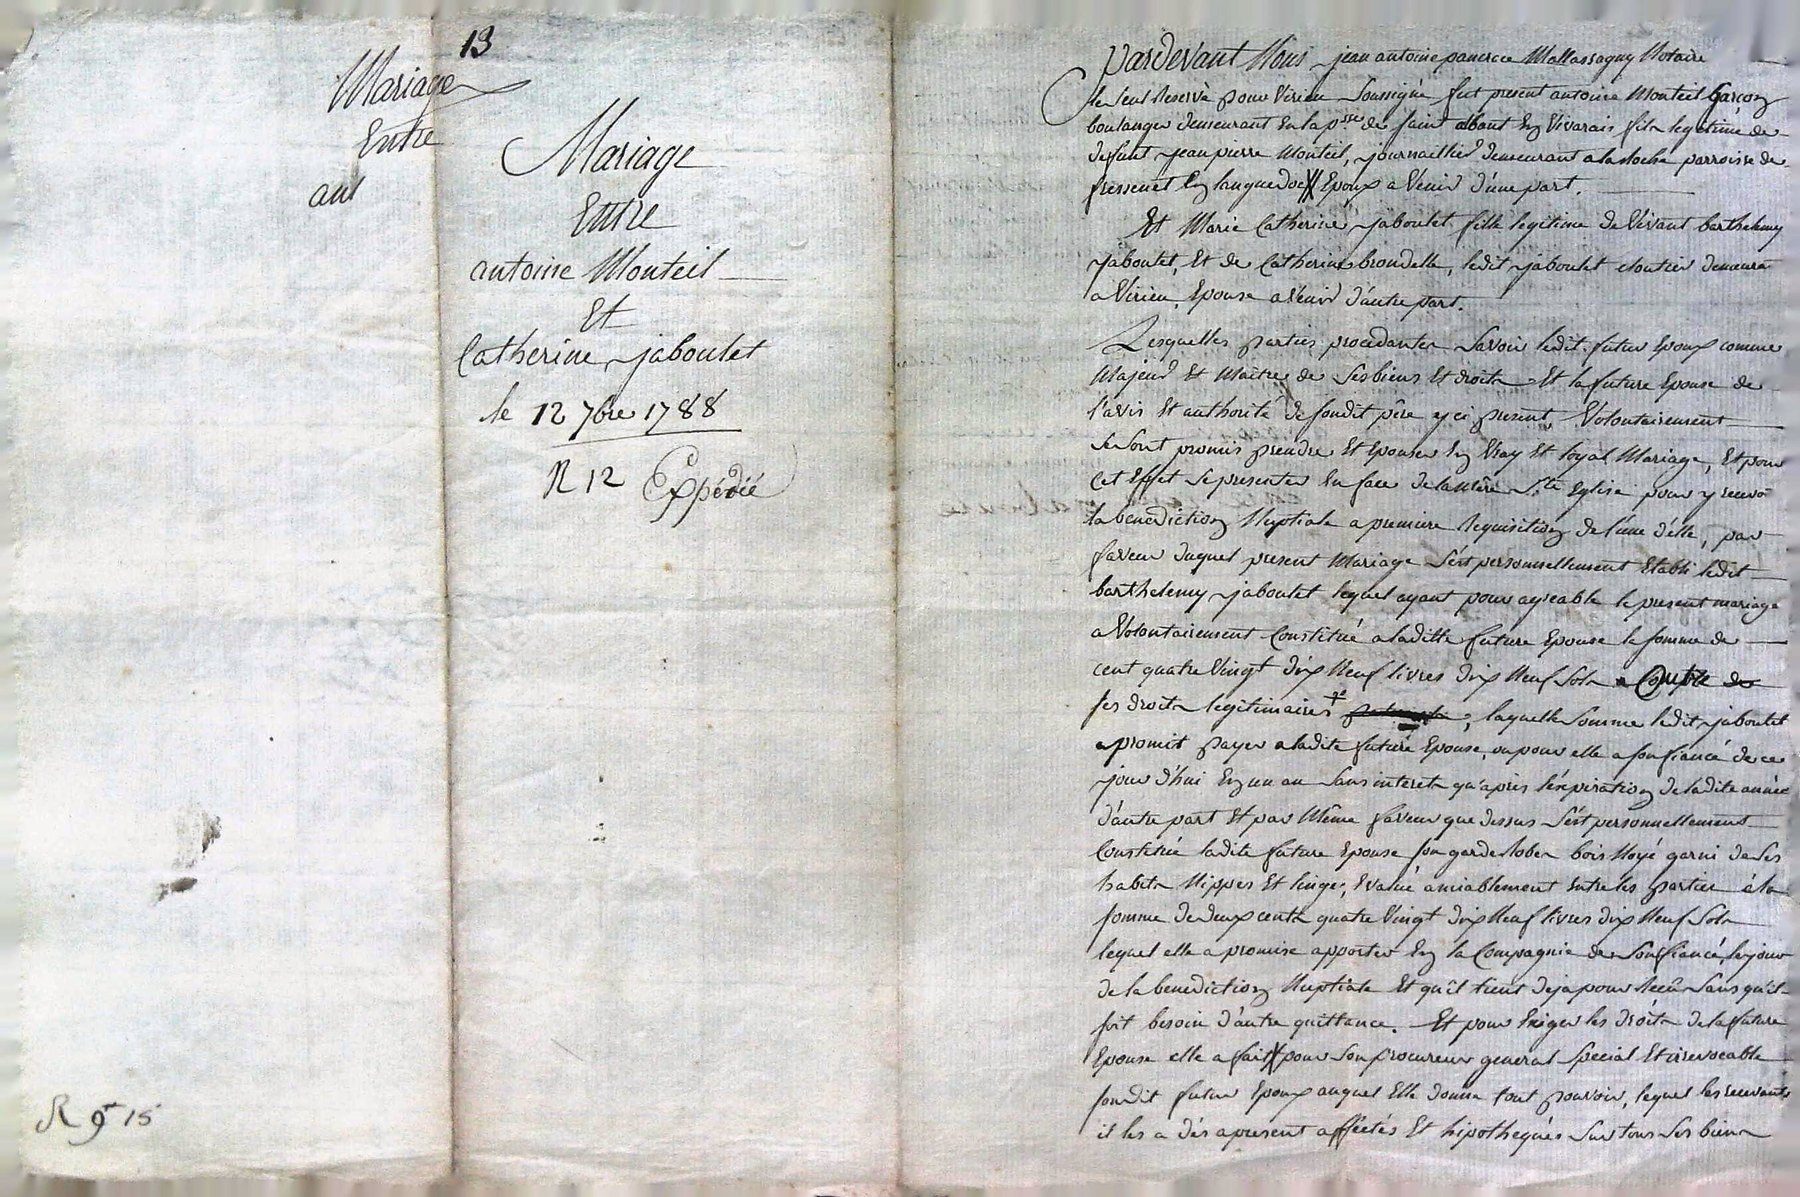 13
Mariage
Entre
ant
Mariage
Entre
antoine Monteil
Et
Catherine jaboulet
le 12 7bre 1788
N 12 Expédié
R 9 15
Pardevant Nous jean antoine pancrace Mallassagny Notaire
le seul Reservé pour Virieu soussigné fut present antoine Monteil Garçon
boulanger demeurant En la psse de saint albant En Vivarais fils legitime de
deffunt jean pierre Monteil, journaillier demeurant a la Roche parroisse de
fressenet En languedoc Epoux a Venir d'une part.
Et Marie Catherine jaboulet fille legitime de Vivant barthelemy
jaboulet, Et de Catherine brondelle, ledit jaboulet cloutier demeurt
a Virieu, Epouse a Venir d'autre part.
Lesquelles parties procedantes savoir ledit futur Epoux comme
Majeur Et Maître de ses biens Et droits Et la future Epouse de
l'avis Et authorité de sondit père y ci present, Volontairement
se sont promis prendre Et Epouser En Vray Et loyal Mariage, Et pour
Cet Effet se presenter En face de la Mère Ste Eglise pour y recevoir
la benediction Nuptiale a premiere Requisition de l'une d'elle, par
faveur duquel present Mariage s'est personnellement Etabli ledit
barthelemy jaboulet lequel ayant pour agreable le present mariage
a Volontairement Constitué a laditte future Epouse la somme de
cent quatre Vingt dix Neuf livres dix Neuf Sols a Compte de
ses droits legitimaires , laquelle somme ledit jaboulet
a promit payer a ladite future Epouse, ou pour elle a son fiancé de ce
jour d'hui En un an sans interets qu'après l'expiration de ladite année
d'autre part Et par Même faveur que dessus s'est personnellement
Constitué ladite future Epouse son garderobes bois Noyé garni de ses
habits Nippes Et linge, Evalué amiablement Entre les parties à la
somme de deux cents quatre Vingt dix Neuf livres dix Neuf Sols
lequel elle a promise apporter En la Compagnie de son fiancé, le jour
de la benediction Nuptiale Et qu'il tient deja pour Recû sans qu'il
soit besoin d'autre quittance. Et pour Exiger les droits de la future
Epouse elle a fait pour son procureur general special Et irrevocable
sondit futur Epoux auquel Elle donne tout pouvoir, lequel les recevant
il les a dès apresent affectés Et hipothequés sur tous ses biens